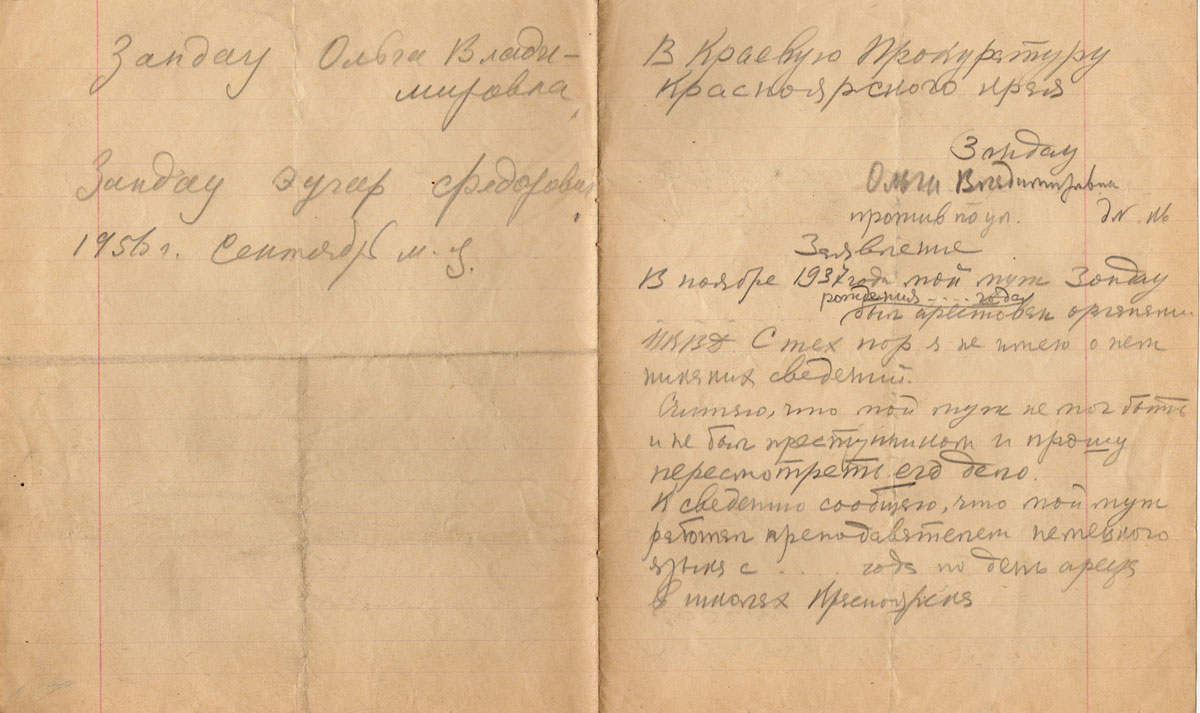 Зандау Ольга Влади-
мировна,
Зандау Эугар Федорович
1956 г. Сентябрь м-ц.
В Краевую Прокуратуру
Красноярского края
Зандау
Ольги Владимировны
против по ул. д №
Заявление
В ноябре 1937 года мой муж Зандау
рождения .... года
был арестован органами
НКВД. С тех пор я не имею о нем
никаких сведений.
Считаю, что мой муж не мог быть
и не был преступником и прошу
пересмотреть его дело.
К сведению сообщаю, что мой муж
работал преподавателем немецкого
языка с .... года по день ареста
в школах Красноярска